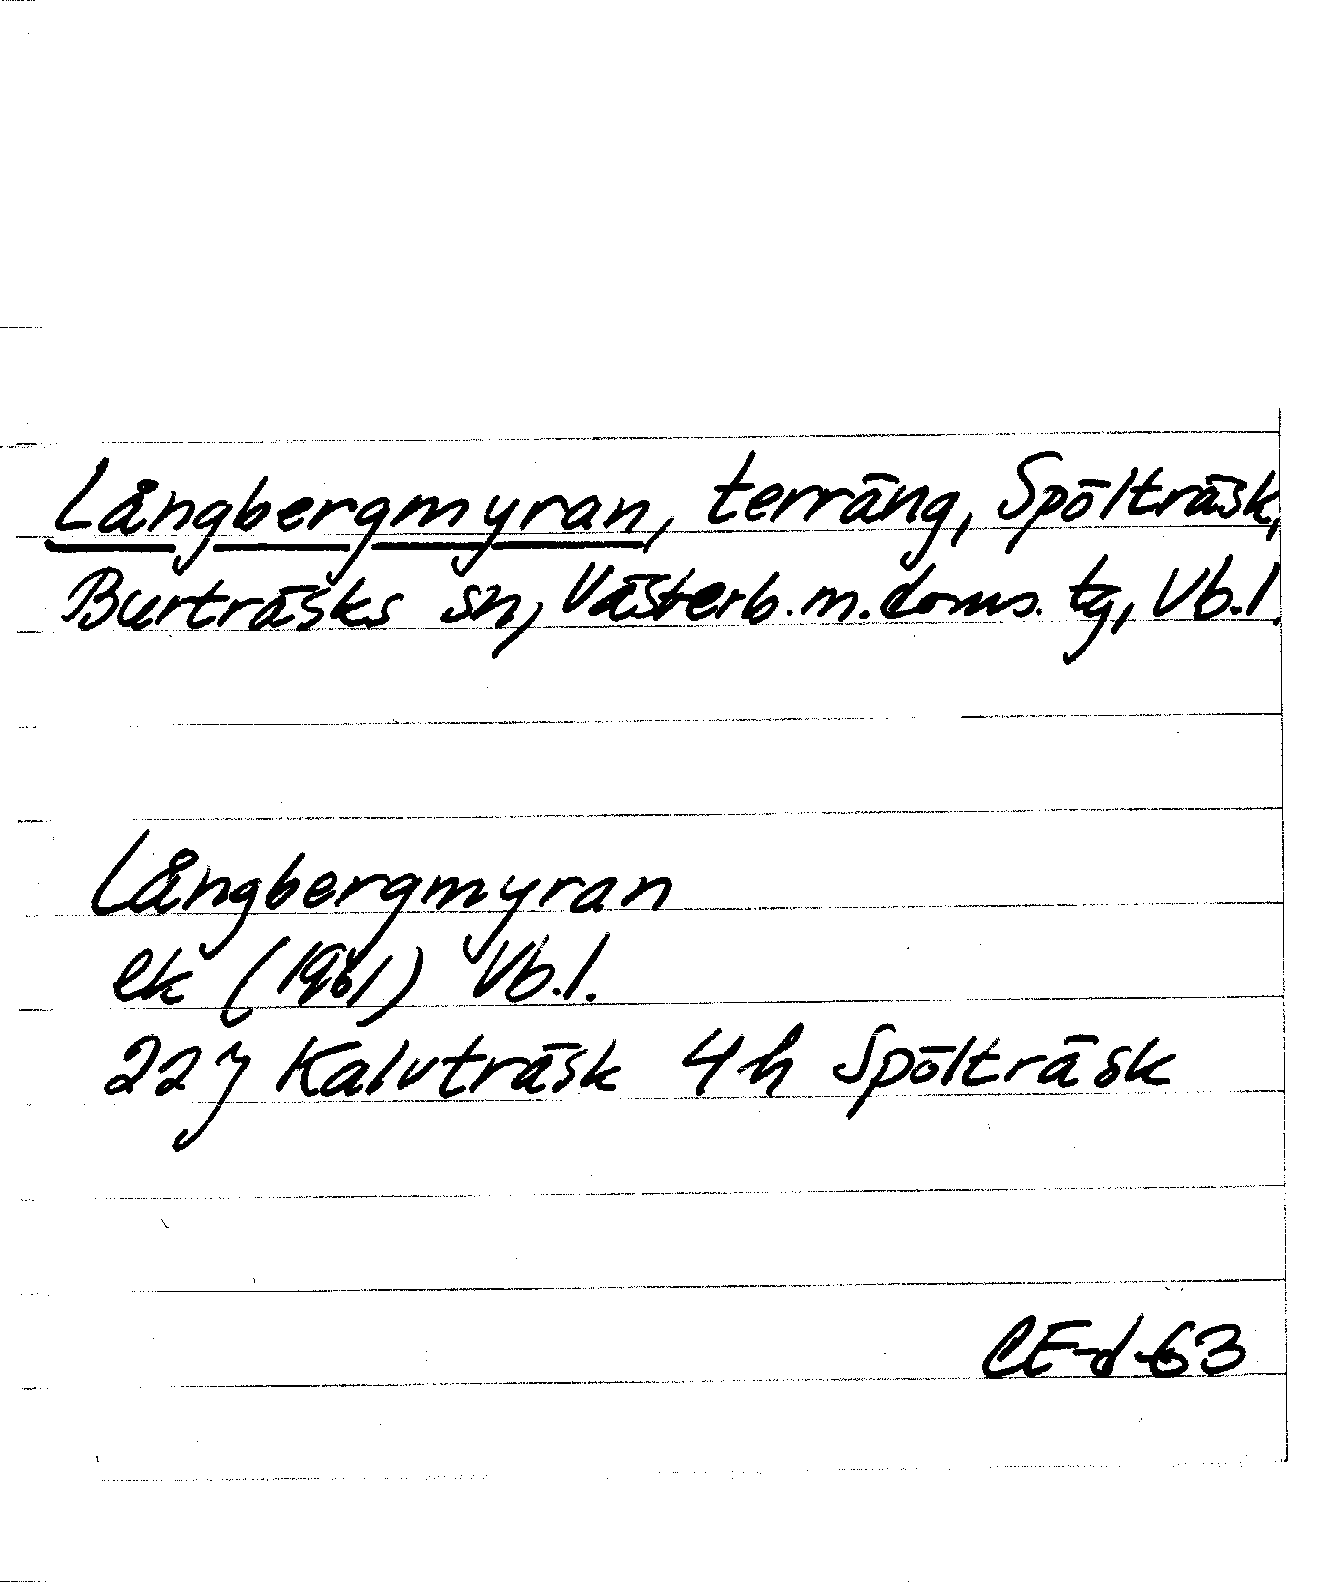 Långbergmyran, terräng, Spölträsk,
Burträsks sn, Västerb.m.doms. tg, Vb.l.
Långbergmyran
ek (1961) Vb.l.
22J Kalvträsk 4h Spölträsk
CE-d-63